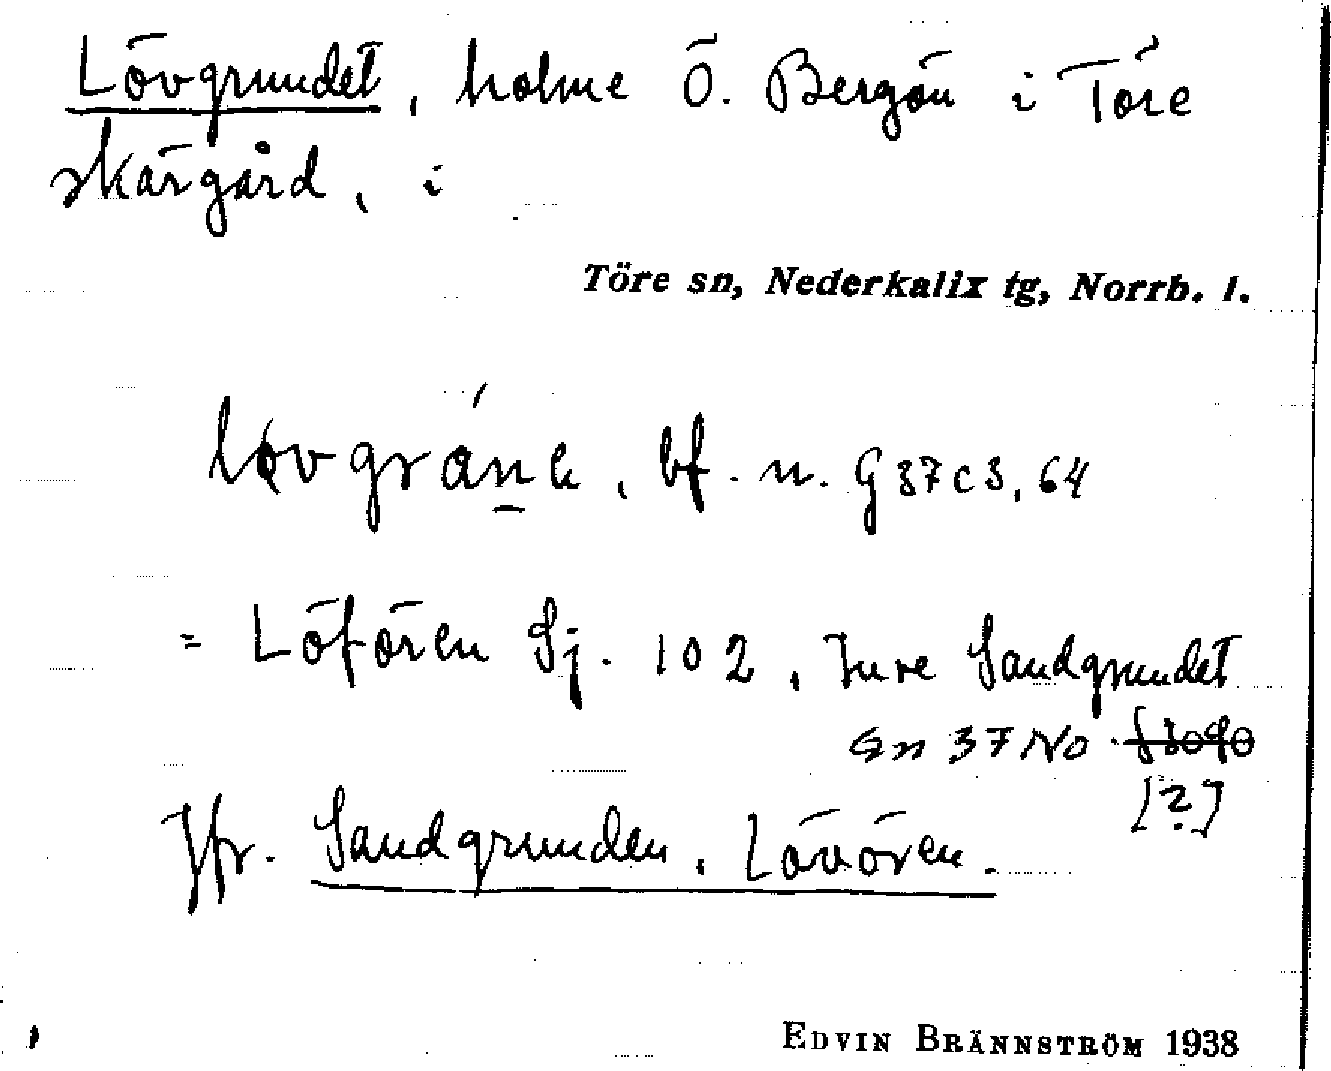 Lövgrundet, holme Ö. Bergön i Töre
skärgård, i
Töre sn, Nederkalix tg, Norrb. l.
bf. n. G 37 c 3, 64
= Löfören Sj. 102, Inre Sandgrundet
Gn 37 NO
[?]
Jfr. Sandgrunden, Lövören.
EDVIN BRÄNNSTRÖM 1938